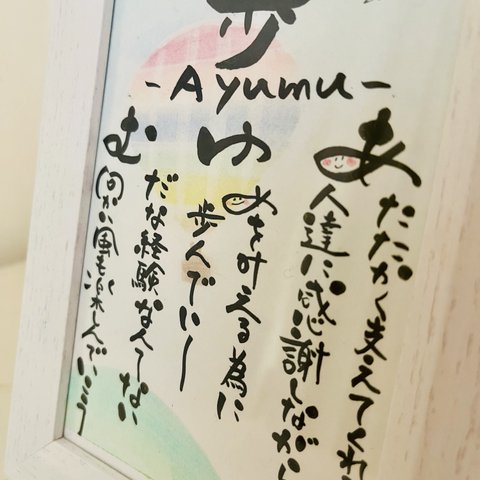 歩
-Ayumu-
あたたかく支えてくれ
人達に感謝しながら
ゆめを叶える為に
歩んでいく
むだな経験なんてない
向かい風も楽しんでいこう